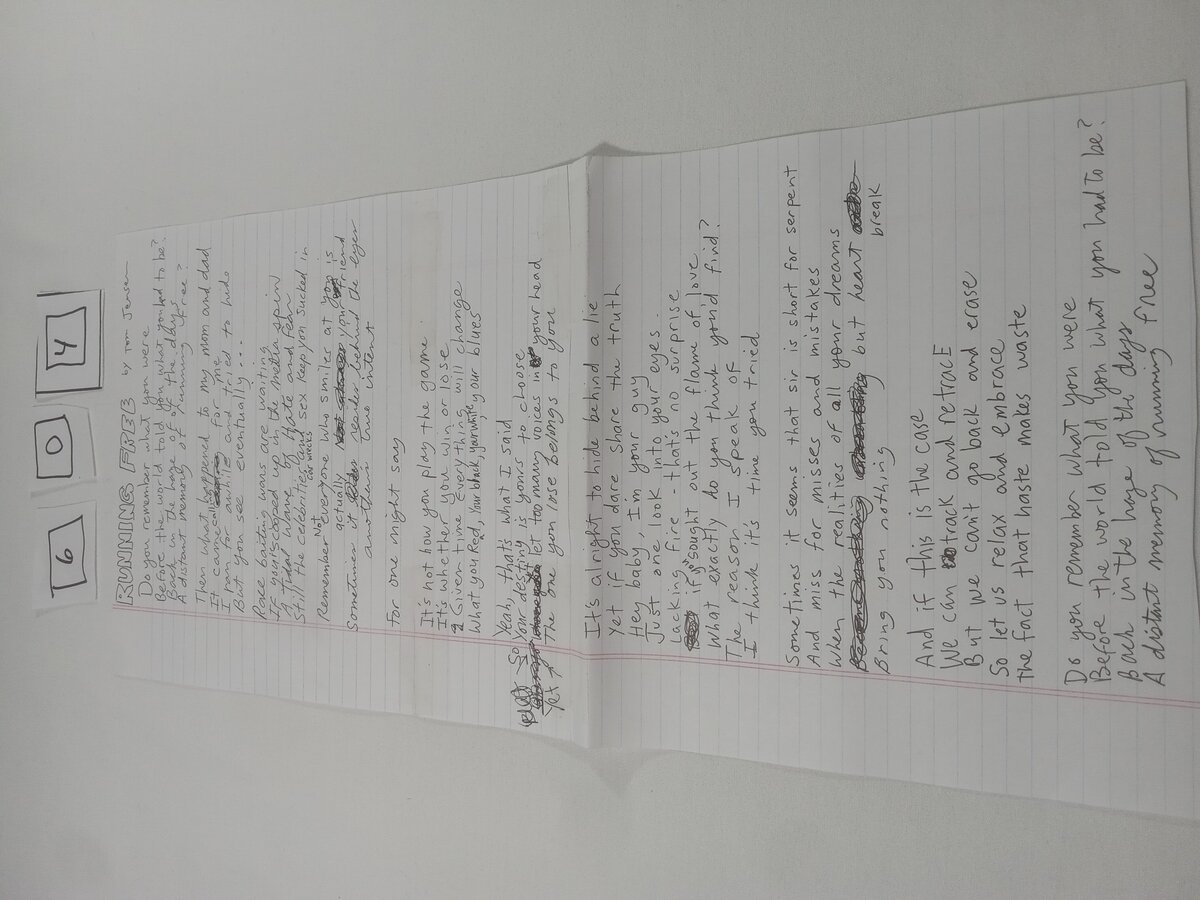 6 0 4
RUNNING FREE by Tom Jensen
Do you remember what you were
Before the world told you what you had to be?
Back in the haze of the days
A distant memory of running free?
Then what happend to my mom and dad
It came for me
I ran for awhile and tried to hide
But you see eventually....
Race baiting wars are waiting
If your scooped up in the media spin
A Tidal wave of Hate and Fear
Still the celebrities and sex keep you sucked in
Remember Not everyone who smiles at you is
actually your friend
Sometimes it reader behind the eyes
another's true intent
For one might say
It's not how you play the game
It's whether you win or lose
Given time Everything will change
What you Red, Your black, your white, your blues
Yeah, that's what I said
So Your destiny is yours to choose
Yet let too many voices in your head
The one you lose belongs to you
It's alright to hide behind a lie
Yet if you dare share the truth
Hey baby, I'm your guy
Just one look into your eyes
Lacking fire - that's no surprise
if you sought out the flame of love
What exactly do you think you'd find?
The reason I speak of
I think it's time you tried
Sometimes it seems that sir is short for serpent
And miss for misses and mistakes
When the realities of all your dreams
Bring you nothing but heart break
And if this is the case
We can track and retrace
But we can't go back and erase
So let us relax and embrace
the fact that haste makes waste
Do you remember what you were
Before the world told you what you had to be?
Back in the haze of the days
A distant memory of running free